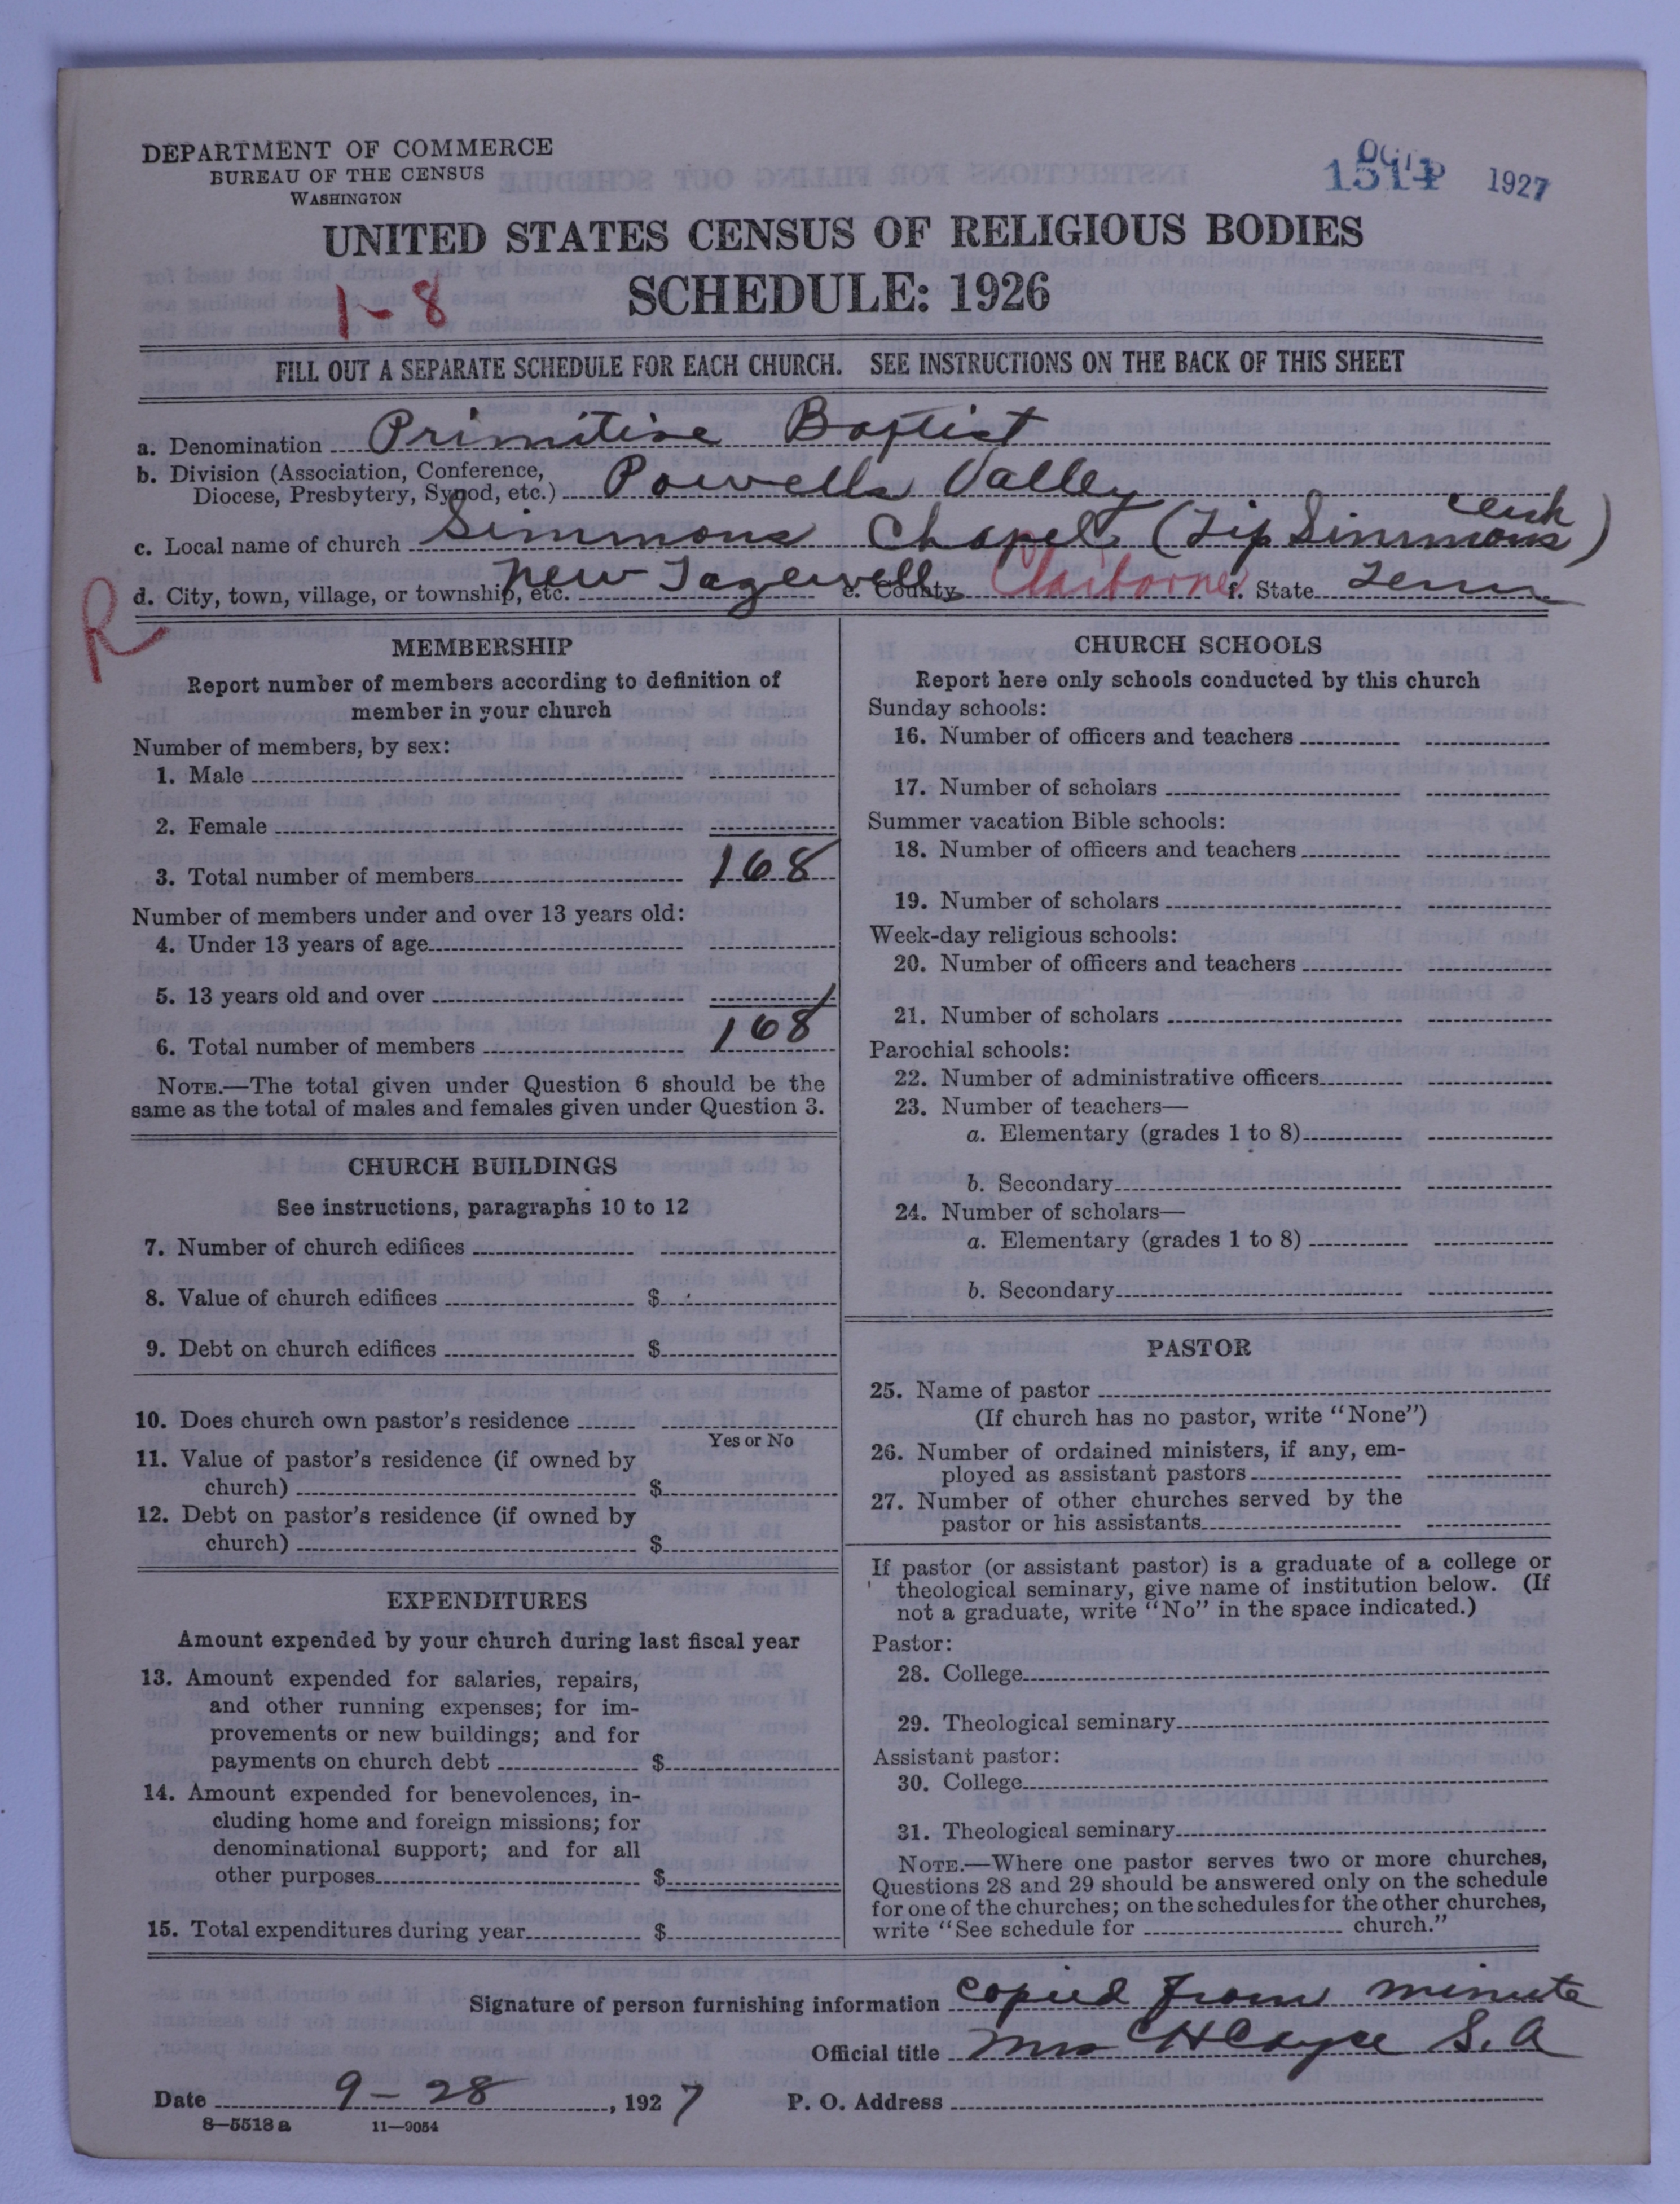 DEPARTMENT OF COMMERCE
BUREAU OF THE CENSUS
WASHINGTON
1927
UNITED STATES CENSUS OF RELIGIOUS BODIES
SCHEDULE: 1926
1-8
FILL OUT A SEPARATE SCHEDULE FOR EACH CHURCH. SEE INSTRUCTIONS ON THE BACK OF THIS SHEET
a. Denomination Primitive Baptist
b. Division (Association, Conference,
Diocese, Presbytery, Synod, etc.) Powells Valley
c. Local name of church Simmons Chapel (Tip Simmons)
d. City, town, village, or township, etc. New Tazewell e. County Claiborne f. State Tenn
R
MEMBERSHIP
Report number of members according to definition of
member in your church
Number of members, by sex:
1. Male
2. Female
3. Total number of members 168
Number of members under and over 13 years old:
4. Under 13 years of age
5. 13 years old and over
6. Total number of members 168
NOTE.—The total given under Question 6 should be the
same as the total of males and females given under Question 3.
CHURCH BUILDINGS
See instructions, paragraphs 10 to 12
7. Number of church edifices
8. Value of church edifices $
9. Debt on church edifices $
10. Does church own pastor's residence
Yes or No
11. Value of pastor's residence (if owned by
church) $
12. Debt on pastor's residence (if owned by
church) $
EXPENDITURES
Amount expended by your church during last fiscal year
13. Amount expended for salaries, repairs,
and other running expenses; for im-
provements or new buildings; and for
payments on church debt $
14. Amount expended for benevolences, in-
cluding home and foreign missions; for
denominational support; and for all
other purposes $
15. Total expenditures during year $
CHURCH SCHOOLS
Report here only schools conducted by this church
Sunday schools:
16. Number of officers and teachers
17. Number of scholars
Summer vacation Bible schools:
18. Number of officers and teachers
19. Number of scholars
Week-day religious schools:
20. Number of officers and teachers
21. Number of scholars
Parochial schools:
22. Number of administrative officers
23. Number of teachers—
a. Elementary (grades 1 to 8)
b. Secondary
24. Number of scholars—
a. Elementary (grades 1 to 8)
b. Secondary
PASTOR
25. Name of pastor
(If church has no pastor, write "None")
26. Number of ordained ministers, if any, em-
ployed as assistant pastors
27. Number of other churches served by the
pastor or his assistants
If pastor (or assistant pastor) is a graduate of a college or
theological seminary, give name of institution below. (If
not a graduate, write "No" in the space indicated.)
Pastor:
28. College
29. Theological seminary
Assistant pastor:
30. College
31. Theological seminary
NOTE.—Where one pastor serves two or more churches,
Questions 28 and 29 should be answered only on the schedule
for one of the churches; on the schedules for the other churches,
write "See schedule for church."
Signature of person furnishing information copied from minute
Official title Mrs C H Cayce S. A
Date 9-28, 1927 P. O. Address
8—5518 a 11—9054